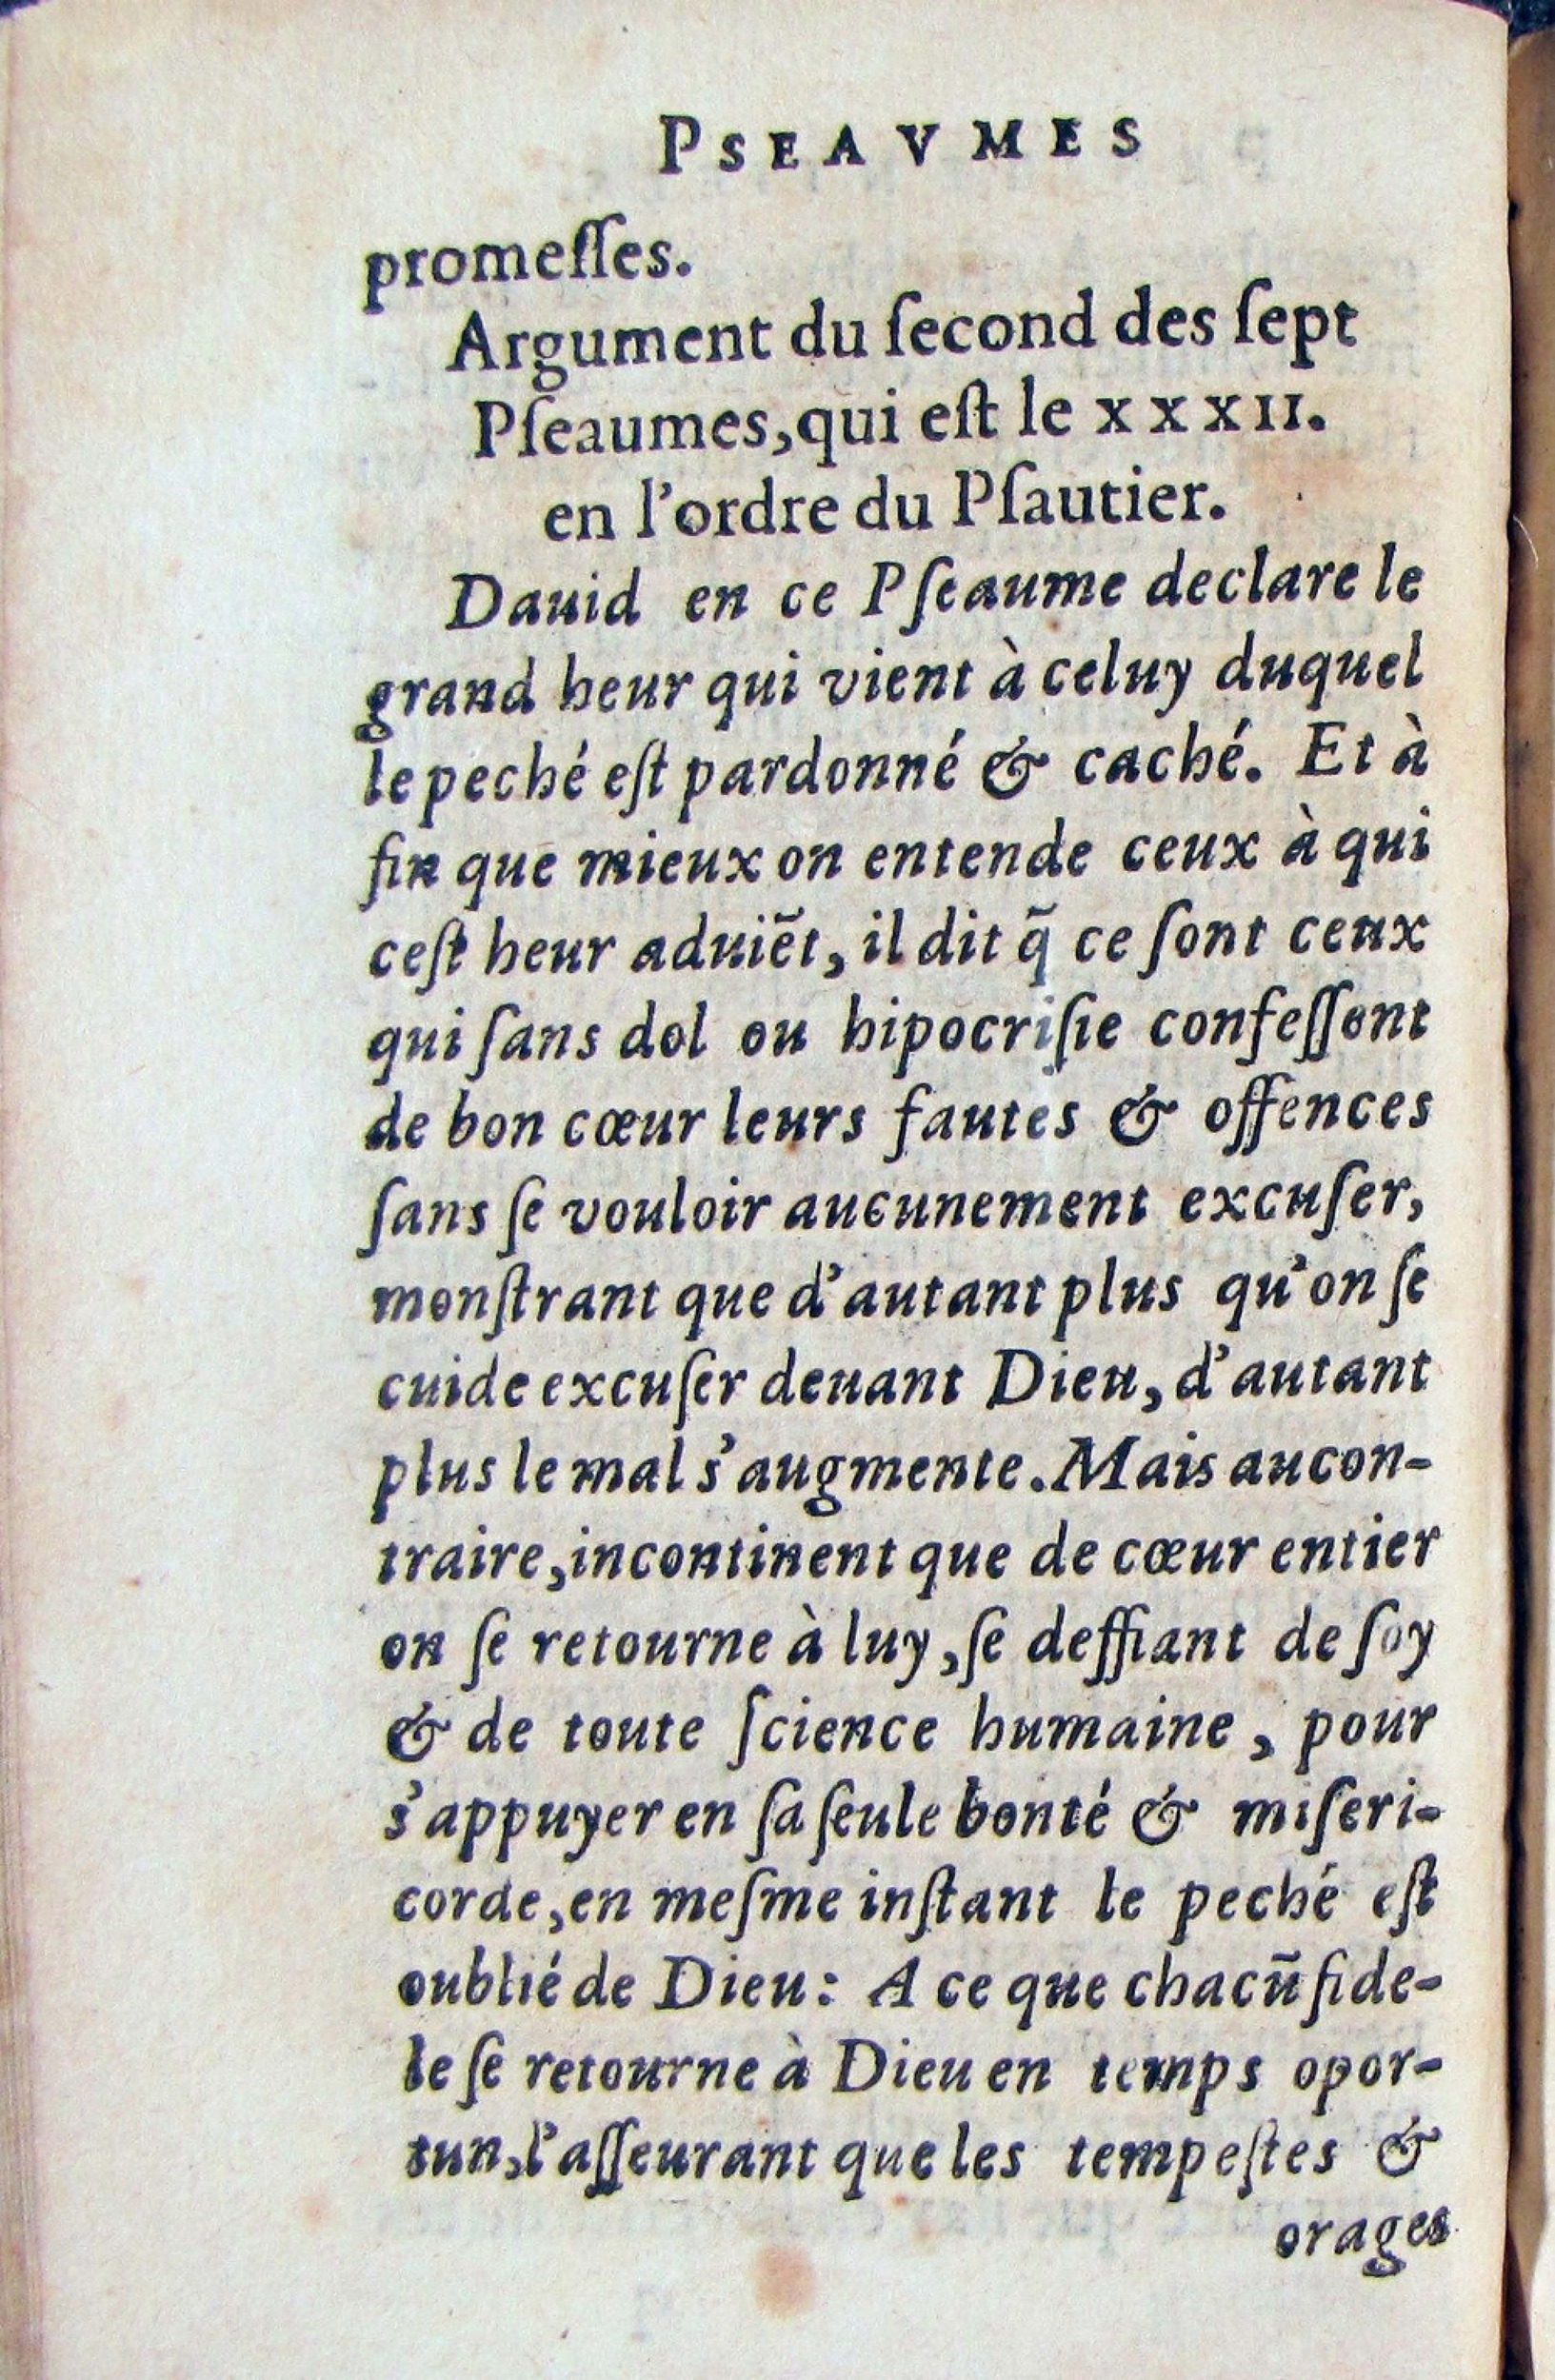 PSEAVMES
promeſſes.
Argument du ſecond des ſept
Pſeaumes, qui eſt le XXXII.
en l'ordre du Pſautier.
Dauid en ce Pſeaume declare le
grand heur qui vient à celuy duquel
le peché eſt pardonné & caché. Et à
fin que mieux on entende ceux à qui
ceſt heur aduiẽt, il dit q̃ ce ſont ceux
qui ſans dol ou hipocriſie confeſſent
de bon cœur leurs fautes & offences
ſans ſe vouloir aucunement excuſer,
monſtrant que d'autant plus qu'on ſe
cuide excuſer deuant Dieu, d'autant
plus le mal s'augmente. Mais aucon-
traire, incontinent que de cœur entier
on ſe retourne à luy, ſe deffiant de ſoy
& de toute ſcience humaine, pour
s'appuyer en ſa ſeule bonté & miſeri-
corde, en meſme inſtant le peché eſt
oublié de Dieu: A ce que chacũ fide-
le ſe retourne à Dieu en temps opor-
tun, l'aſſeurant que les tempeſtes &
orages